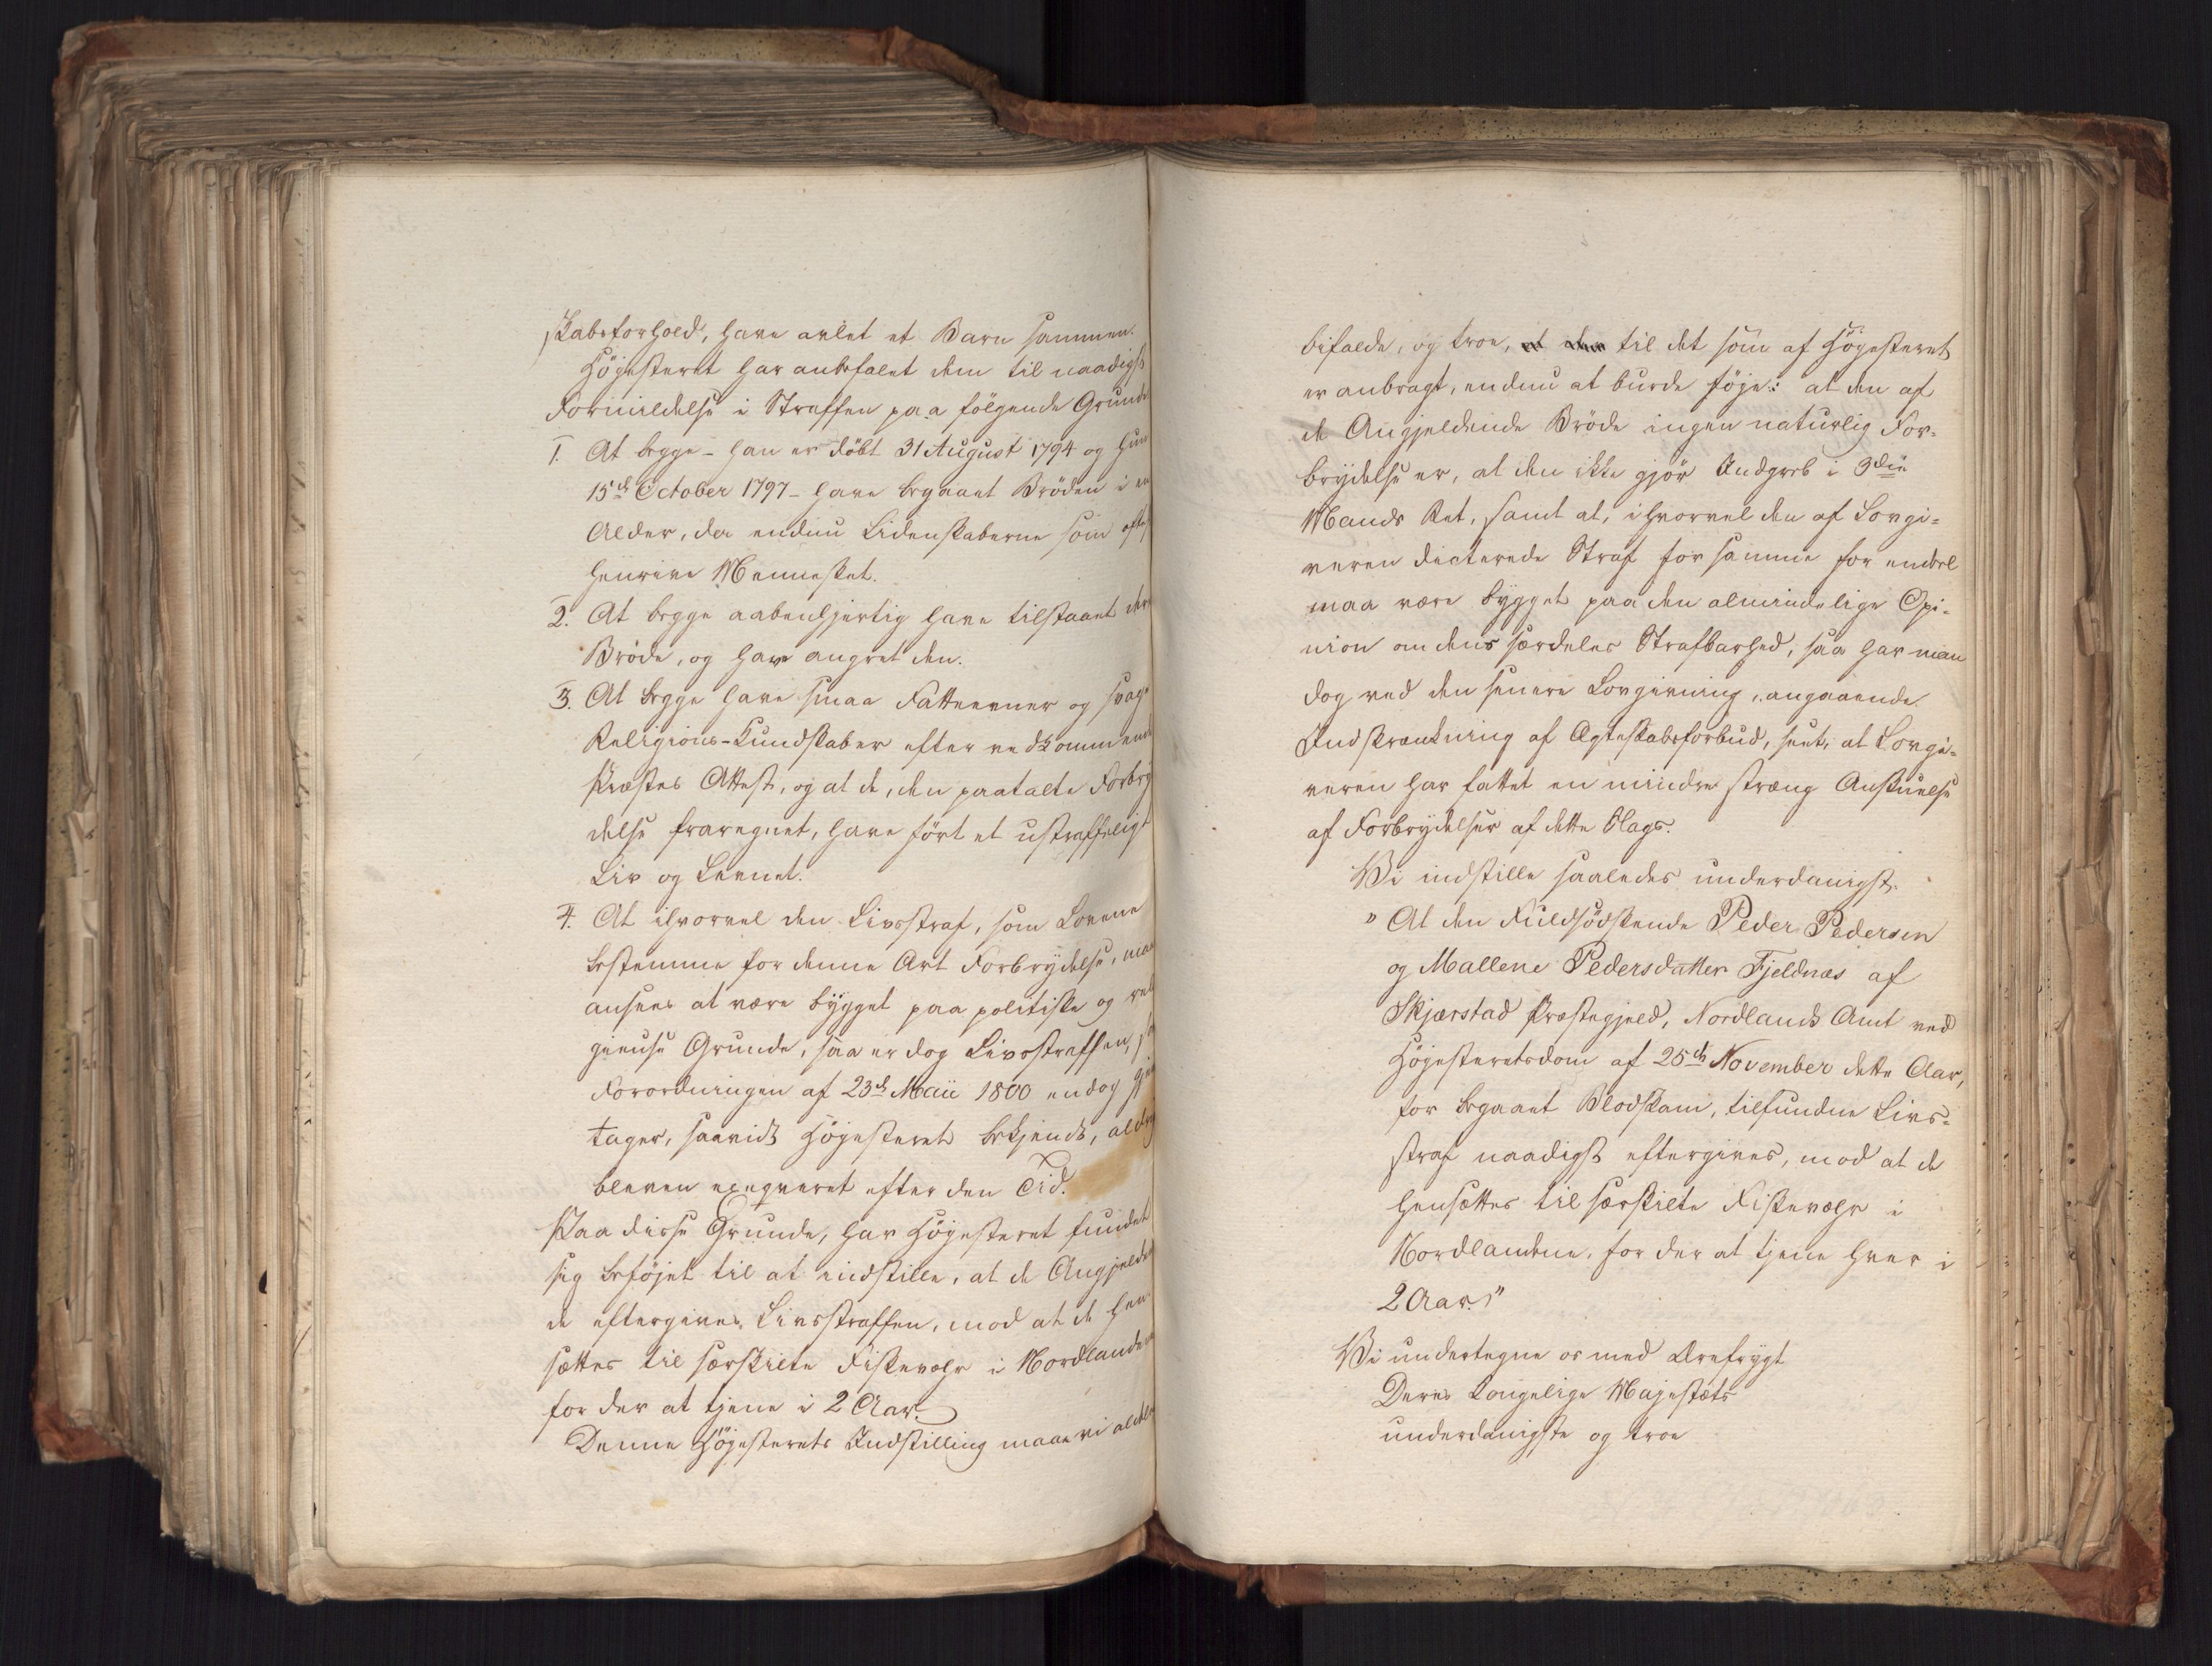 skabsforhold, have avlet et Barn sammen.
Høgesteret har anbefalet dem til naadigst
Formildelse i Straffen paa følgende Grunde
1. At begge - han er døbt 31 August 1794 og hun
15de October 1797 - have begaaet Brøden i en
Alder, da endnu Lidenskaberne som oftest
henrive Mennesket.
2. At begge aabenhjertig have tilstaaet deres
Brøde, og have angret den.
3. At begge have smaa Fatteevner og svage
Religions-Kundskaber efter vedkommende
Præstes Attest, og at de, den paatalte Forbry
delse fraregnet, have ført et ustraffeligt
Liv og Levnet.
4. At ihvorvel den Livsstraf, som Lovene
bestemme for denne Art Forbrydelse, maa
ansees at være bygget paa politiske og reli
gieuse Grunde, saa er dog Livsstraffen, som
Forordningen af 23de Maii 1800 endog gjen
tager, saavidt Høgesteret bekjendt, aldrig
bleven exeqveret efter den Tid.
Paa disse Grunde, har Høgesteret fundet
sig beføjet til at indstille, at de Angjelden
de eftergives Livsstraffen, mod at de hen
sættes til særskilte Fiskevær i Nordlandene
for der at tjene i 2 Aar.
Denne Høgesterets Indstilling maae vi aldeles
bifalde, og troe, til det som af Høgesteret
er anbragt, endnu at burde føje: at den af
de Angjeldende Brøde ingen naturlig For=
brydelse er, at den ikke gjør Indgreb i 3die
Mands Ret, samt at, ihvorvel den af Lovgi=
veren dicterede Straf for samme for endeel
maa være bygget paa den almindelige Opi=
nion om dens særdeles Strafbarhed, saa har man
dog ved den senere Lovgivning, angaaende
Indskrænkning af Ægteskabsforbud, seet, at Lovgi=
veren har fattet en mindre stræng Anskuelse
af Forbrydelser af dette Slags.
Vi indstille saaledes underdanigst:
"At den Fuldsødskende Peder Pedersen
og Mallene Pedersdatter Fjeldnæs af
Skjærstad Præstegjeld, Nordlands Amt ved
Høgesteretsdom af 25de November dette Aar,
for begaaet Blodskam, tilfundne Livs=
straf naadigst eftergives, mod at de
hensættes til særskilte Fiskevær i
Nordlandene, for der at tjene hver i
2 Aar."
Vi undertegne os med Ærefrygt
Deres Kongelige Majestæts
underdanigste og troe